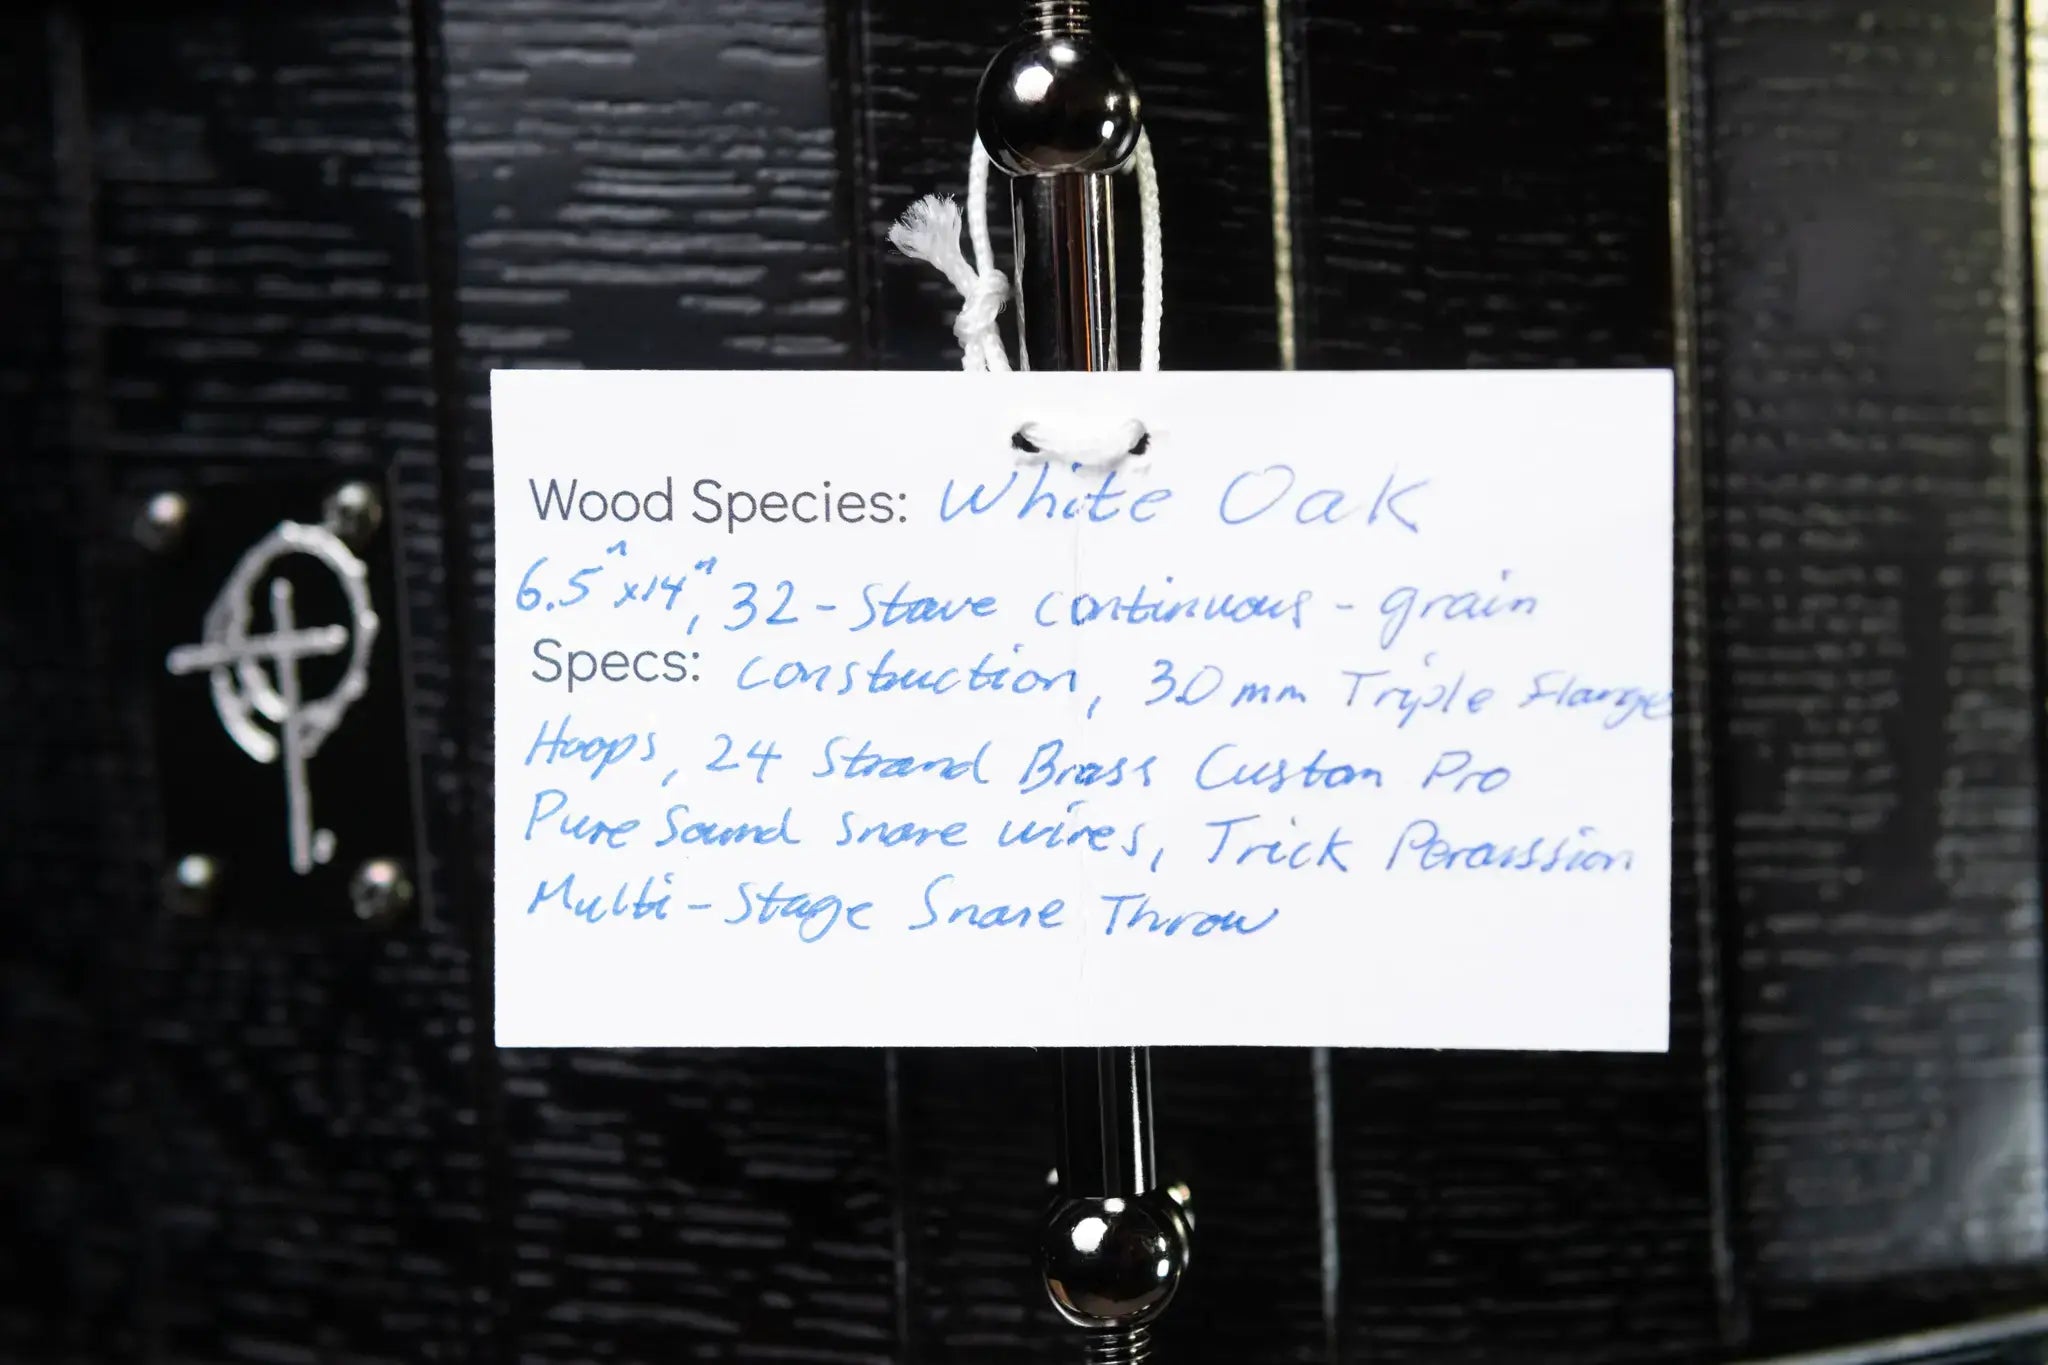 Wood Species: White Oak
6.5"x14", 32-Stave continuous-grain
Specs: construction, 3.0mm Triple Flange
Hoops, 24 Strand Brass Custom Pro
Pure Sound snare wires, Trick Percussion
Multi-Stage Snare Throw